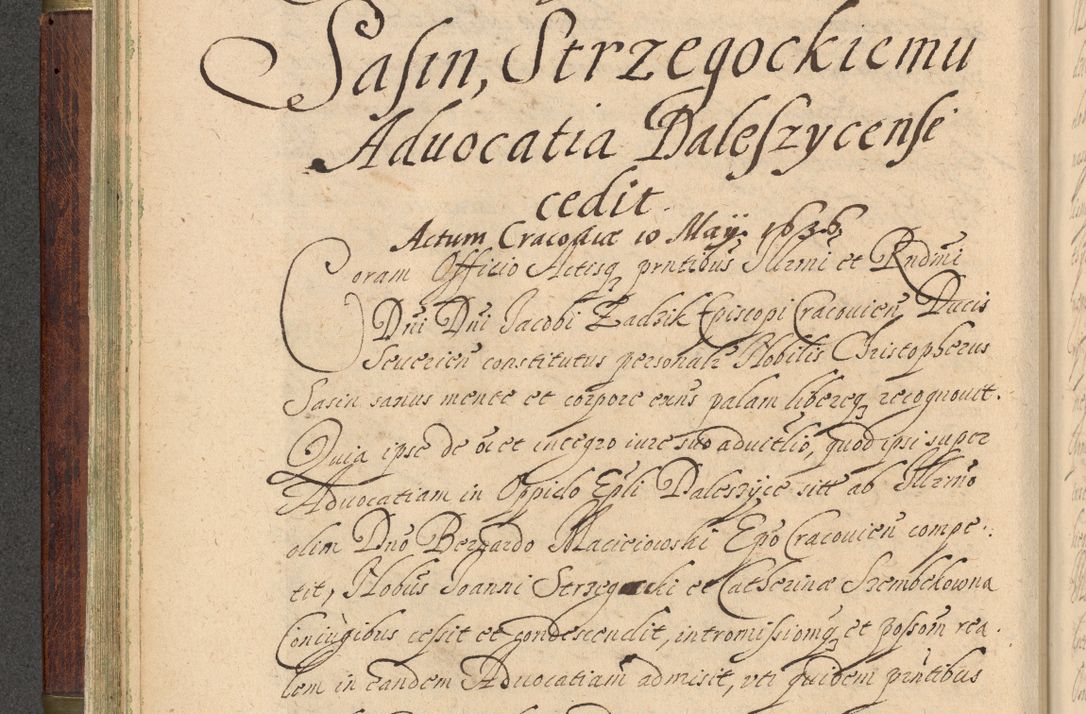 Sasin, Strzegockiemu
Aduocatia Daleszycensi
cedit.
Actum Cracoviæ 10 Maÿ 1636
Coram Officio Actisq prntibus Illrmi et Rndmi
Dni Dni Jacobi Zadzik Episcopi Cracovien Ducis
Severien constitutus personalr Nobilis Christopherus
Sasin sanus mente et corpore exns palam libereq recognovit.
Quia ipse de oi et integro iure suo aduitlio, quod ipsi super
Aduocatiam in Oppido Epli Daleszyce sitt ab Illrmo
olim Dno Bernardo Macieiowski Epo Cracovien compe:
tit, Nobus Joanni Strzegocki et Catherinæ Szembekowna
Coniugibus cessit et condescendit, intromissionq et possom rea
lem in eandem Aduocatiam admisit, vti quidem prntibus